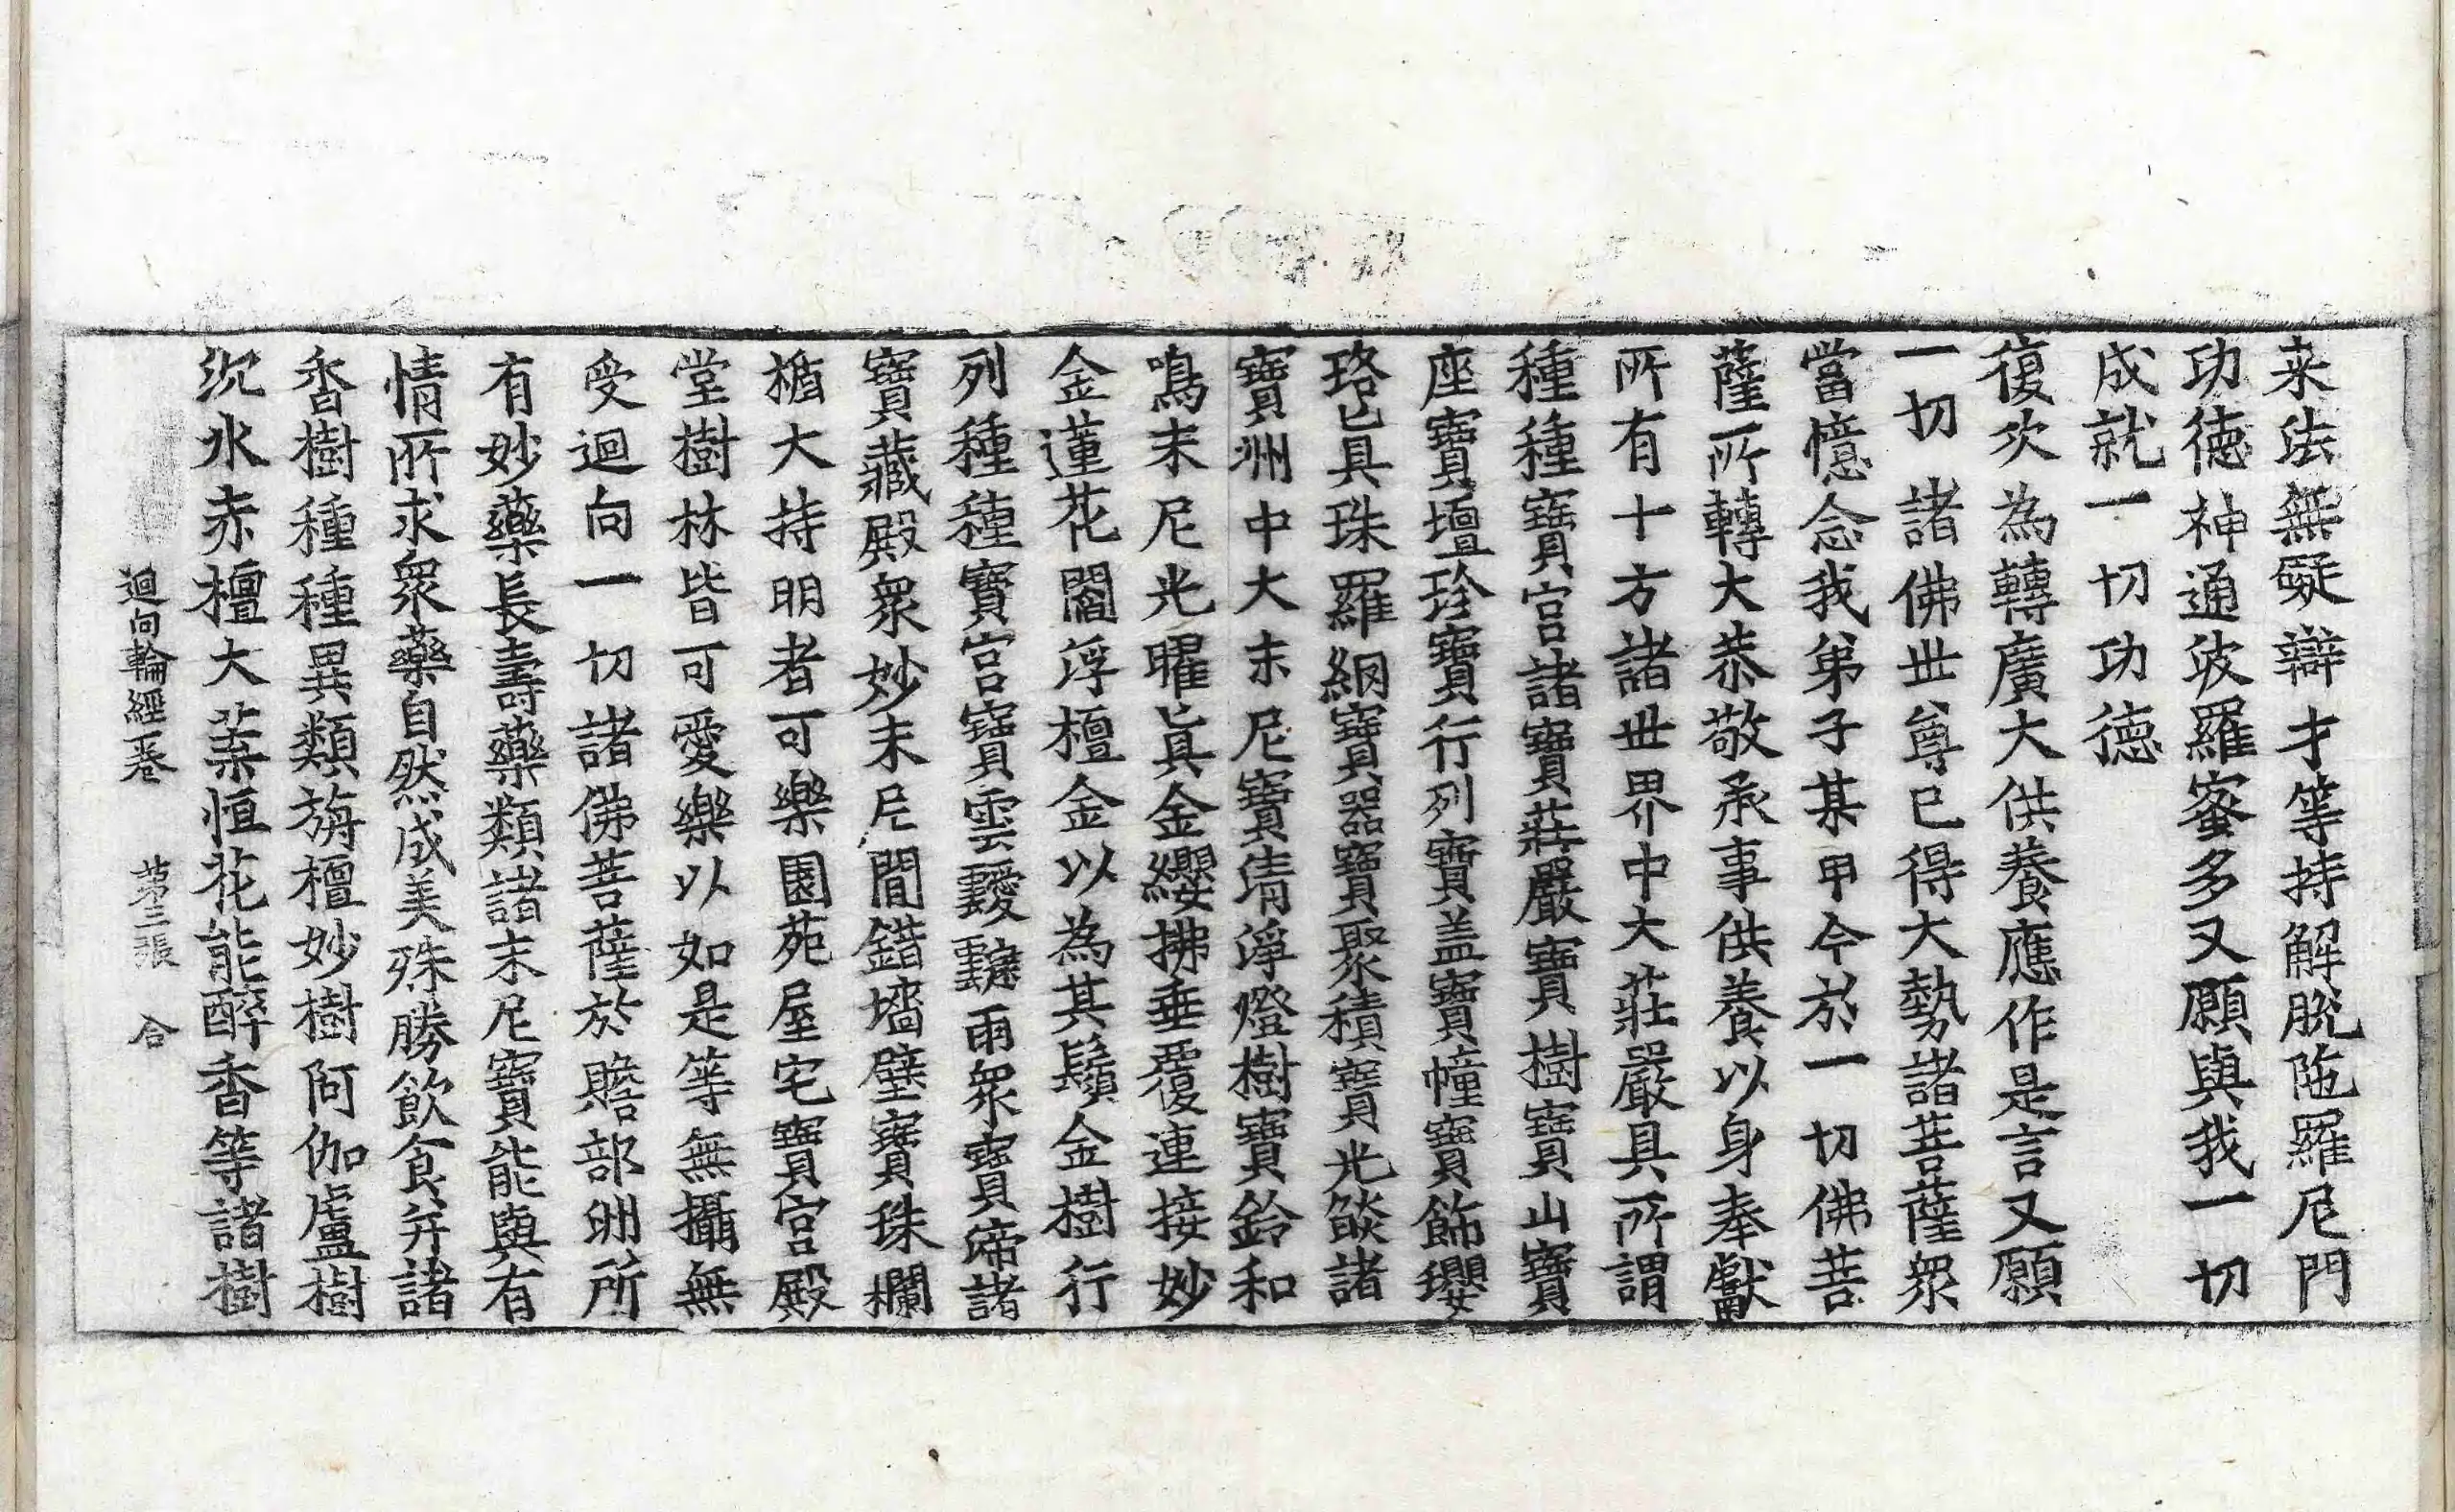 来法無礙辯才等持解脫陁羅尼門
功德神通波羅蜜多又願與我一切
成就一切功德
復次為轉廣大供養應作是言又願
一切諸佛世尊已得大勢諸菩薩衆
當憶念我弟子某甲今於一切佛菩
薩所轉大恭敬承事供養以身奉獻
所有十方諸世界中大莊嚴具所謂
種種寶宮諸寶莊嚴寶樹寶山寶
座寶壇珍寶行列寶盖寶幢寶飾瓔
珞匙具珠羅網寶器寶聚積寶光燄諸
寶洲中大末尼寶清淨燈樹寶鈴和
鳴末尼光曜真金纓拂垂覆連接妙
金蓮花閻浮檀金以為其鬚金樹行
列種種寶宮寶雲靉靆雨衆寶滴諸
寶藏殿衆妙末尼間錯墻壁寶珠欄
楯大持明者可樂園苑屋宅寶宮殿
堂樹林皆可愛樂以如是等無攝無
受迴向一切諸佛菩薩於贍部洲所
有妙藥長壽藥類諸末尼寶能與有
情所求衆藥自然成美殊勝飲食并諸
香樹種種異類旃檀妙樹阿伽盧樹
沉水赤檀大葉恒花能醉香等諸樹
迴向輪經一卷 苐三張 合